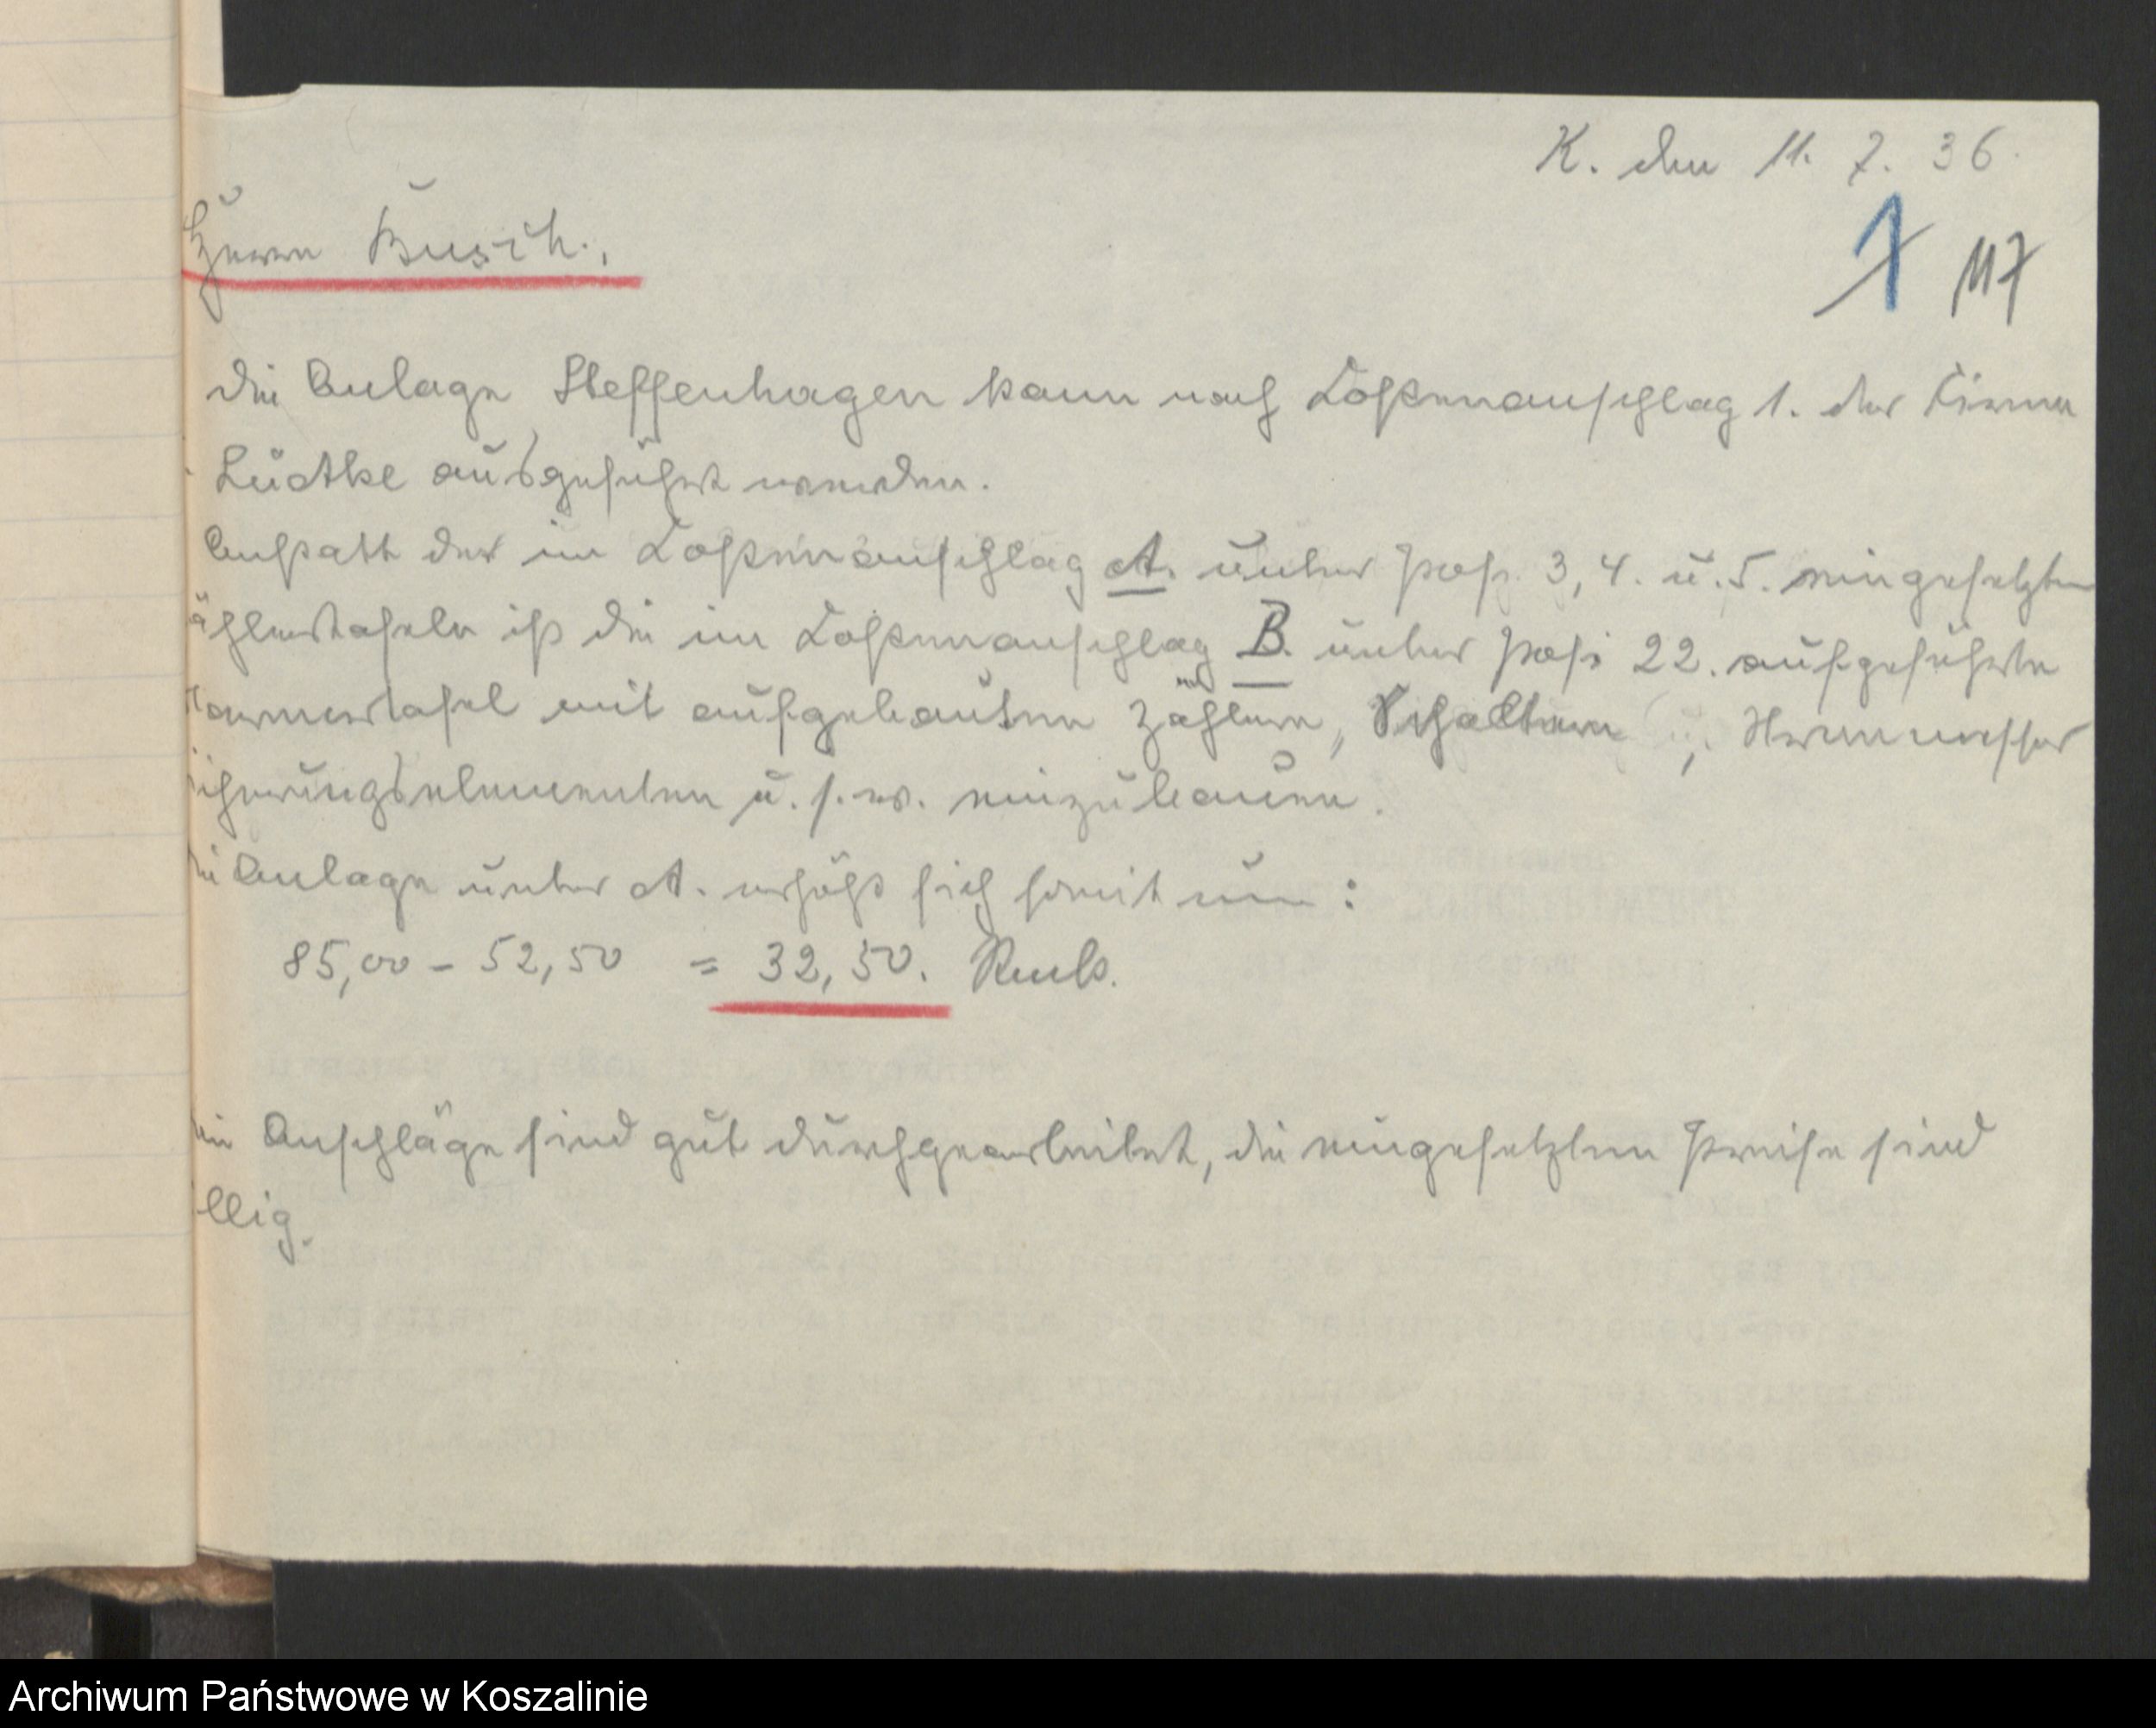 K. den 11. 7. 36.
1 117
Herrn Busch.,
Die Anlage Steffenhagen kann nach Kostenanschlag 1. der Firma
Lüdtke ausgeführt werden.
Anstatt der im Kostenanschlag A. unter Pos. 3, 4. u. 5. eingesetzten
ählertafeln ist die im Kostenanschlag B. unter Posi 22. aufgeführte
armortafel mit aufgebauten Zählern, Schaltern, Strommesser
icherungselementen u. s. w. einzubauen.
ie Anlage unter A. erhöht sich somit um:
85,00 – 52,50 = 32,50. Rmk.
ie Anschläge sind gut durchgearbeitet, die eingesetzten Preise sind
llig.
Archiwum Państwowe w Koszalinie